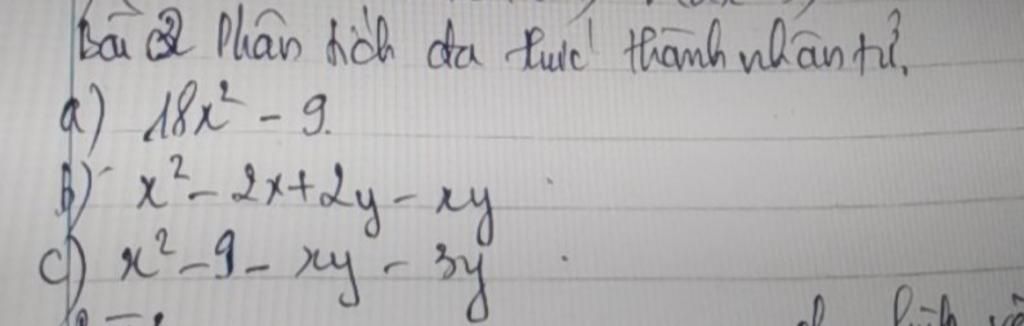 Bài 2 Phân tích đa thức thành nhân tử.
a) 18x² - 9.
b) x² - 2x + 2y - xy
c) x² - 9 - xy - 3y